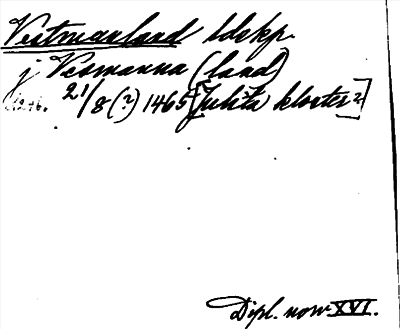 Vestmanland ldskp.
j Vesmanna (land)
21/8 (?) 1465 [Julita kloster?]
Dipl. norv. XVI.